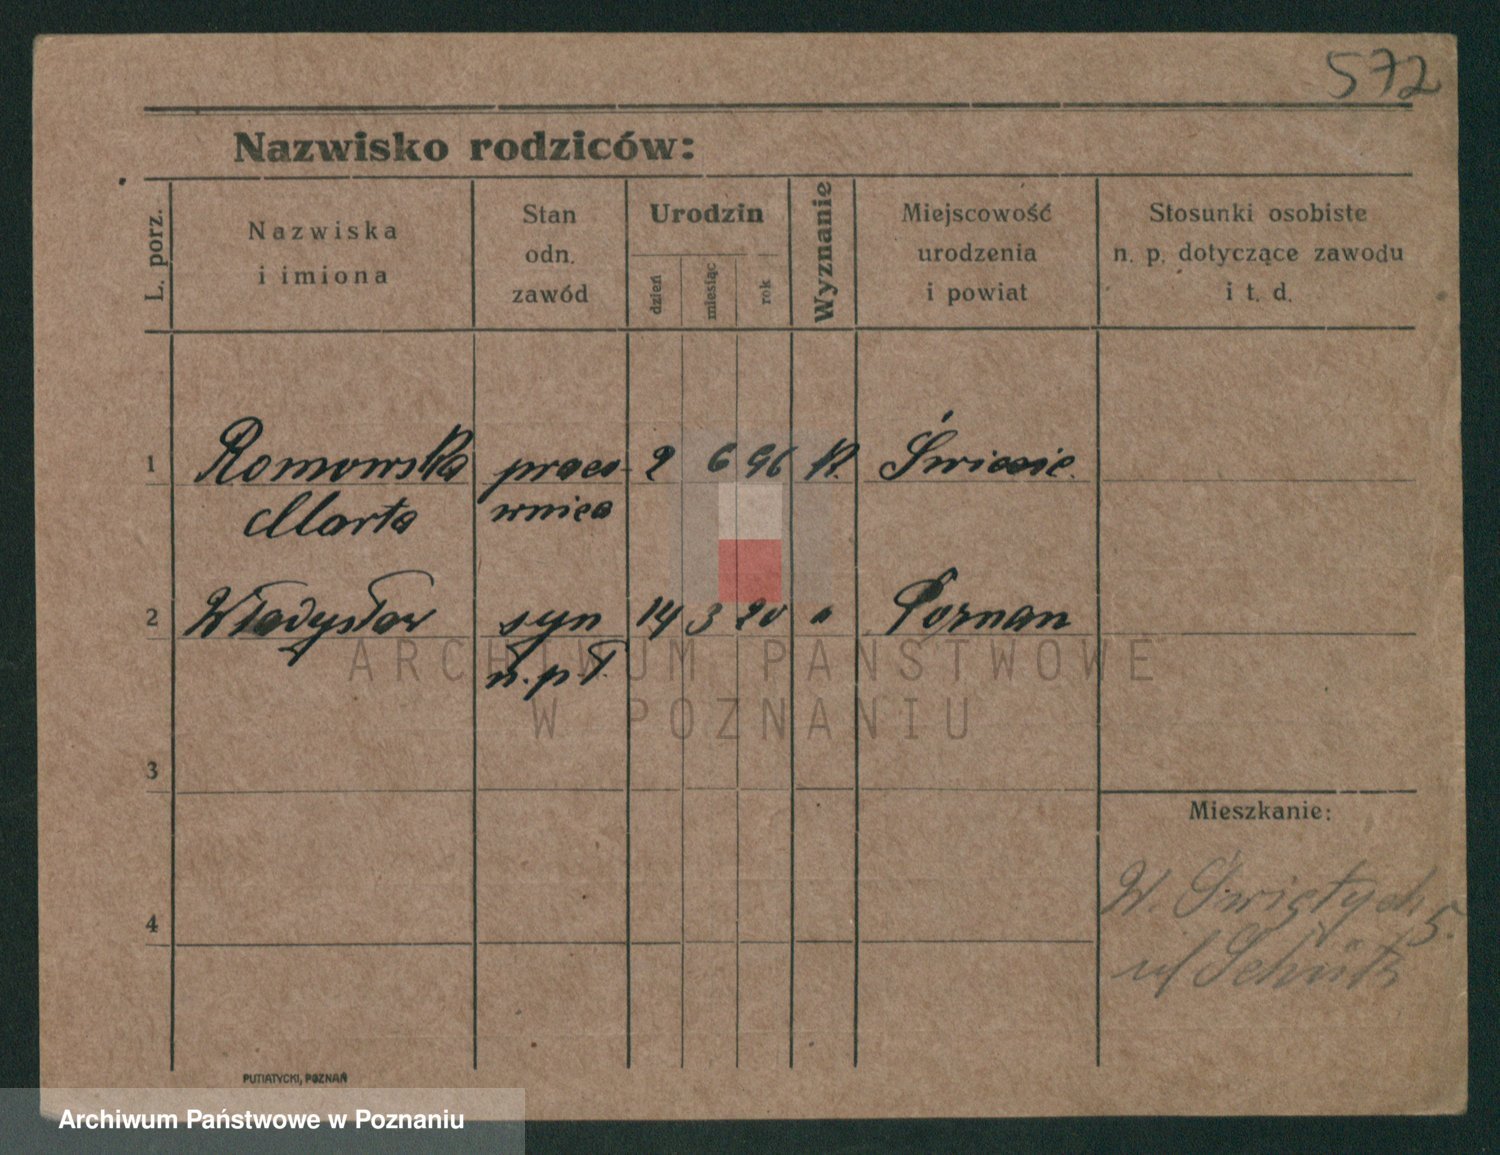 572
Nazwisko rodziców:
L. porz.
Nazwiska
i imiona
Stan
odn.
zawód
Urodzin
dzień
miesiąc
rok
Wyznanie
Miejscowość
urodzenia
i powiat
Stosunki osobiste
n. p. dotyczące zawodu
i t. d.
1 Romowska praco- 2 6 96 K.
Marta wnica
2 Władysław syn 14 3 20 " Poznan
n.p.
3
4
Mieszkanie:
W. Świętych 5.
PUTIATYCKI, POZNAŃ
ARCHIWUM PAŃSTWOWE
W POZNANIU
Archiwum Państwowe w Poznaniu